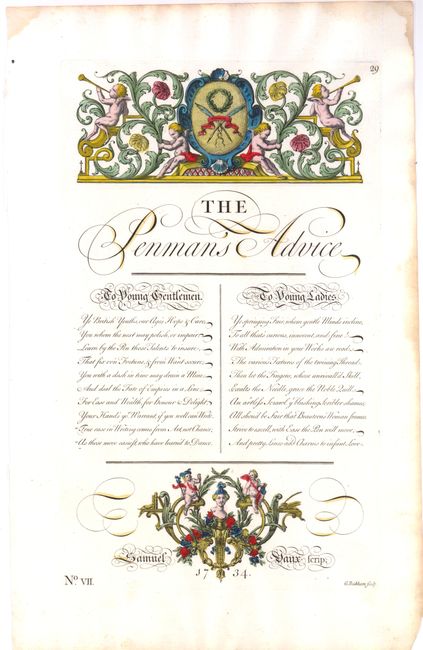 29
THE
Penman's Advice
To Young Gentlemen.
Ye British Youths, our Ages Hope & Care,
You whom the next may polish, or impair;
Learn by the Pen those Talents to insure,
That fix ev'n Fortune, & from Want secure.
You with a dash in time may drain a Mine,
And deal the Fate of Empires in a Line.
For Ease and Wealth, for Honour & Delight,
Your Hand's yr. Warrant, if you well can Write.
True ease in Writing comes from Art, not Chance,
As those move easiest, who have learn'd to Dance.
To Young Ladies.
Ye springing Fair, whom gentle Minds incline,
To all that's curious, innocent, and fine!
With Admiration in your Works are read,
The various Textures of the twining Thread.
Then let the Fingers, whose unrivall'd Skill,
Exalts the Needle, grace the Noble Quill.
An artless Scrawl, ye blushing Scribler shames;
All shou'd be fair that Beauteous Woman frames.
Strive to excell, with Ease the Pen will move;
And pretty Lines add Charms to infant Love.
Samuel Vaux scrip:
1734.
No. VII.
G. Bickham sculp.